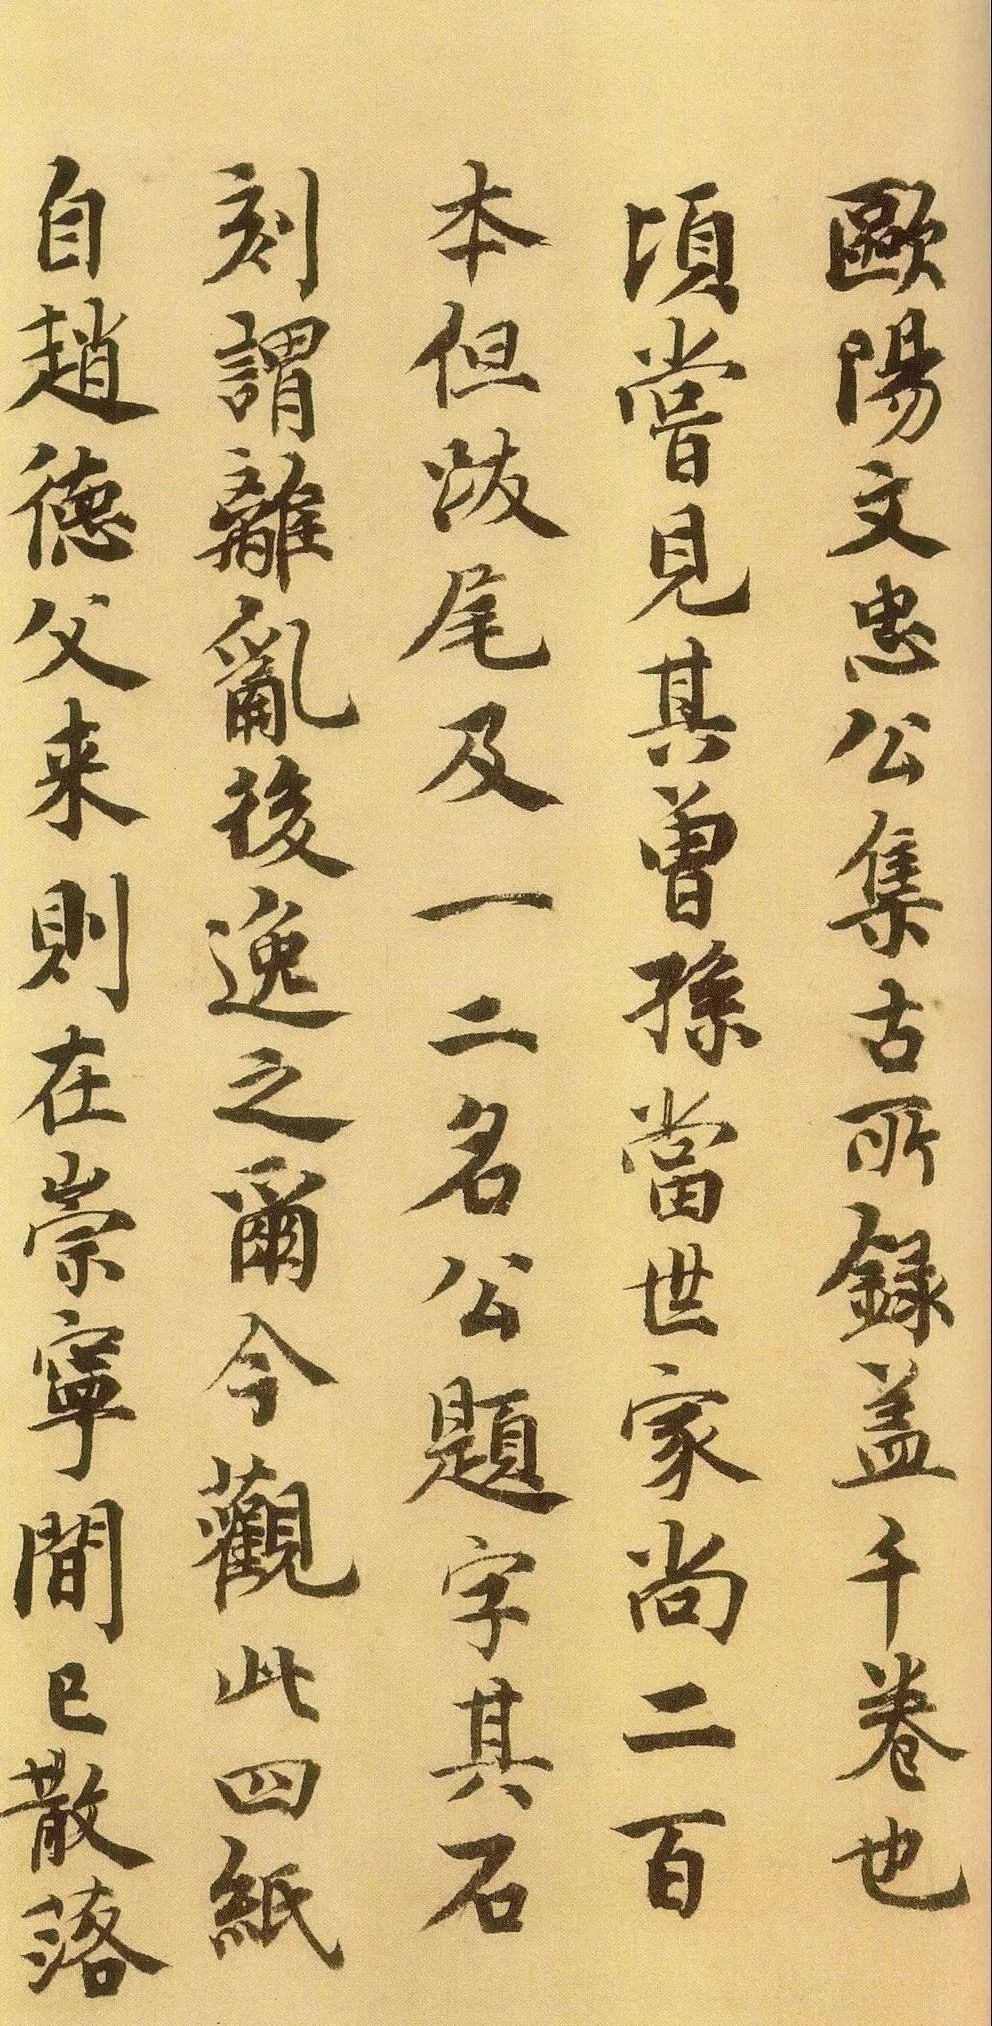 歐陽文忠公集古所録盖千卷也
頃嘗見其曾孫當世家尚二百
本但跋尾及一二名公題字其石
刻謂離亂後逸之爾今觀此四紙
自趙德父来則在崇寧間已散落